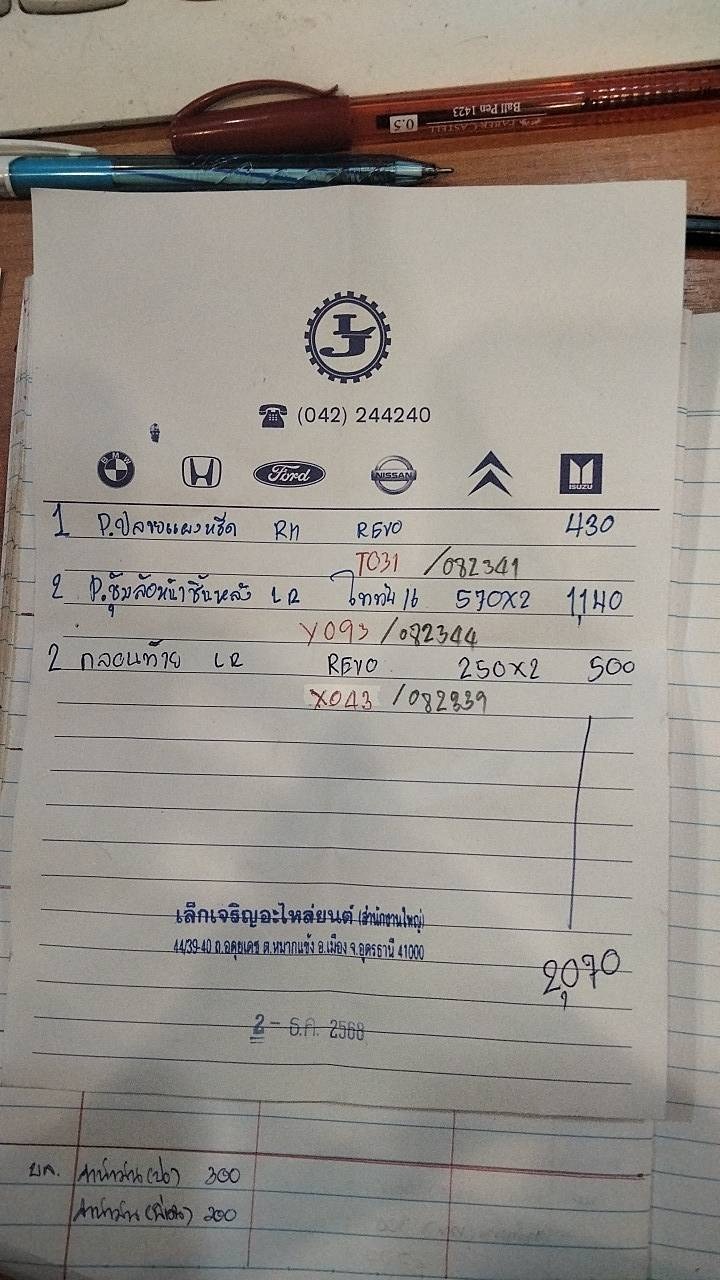 FABER CASTELL Ball Pen 1423 0.5
LJ
(042) 244240
BMW H Ford NISSAN ISUZU
1 P.ปลายแผงหรีด RH REVO 430
TO31 /082341
2 P.ซุ้มล้อหน้าชิ้นหลัง LR ไททัน 16 570x2 1,140
YO93 /082344
2 กลอนท้าย LR REVO 250x2 500
XO43 /082339
เล็กเจริญอะไหล่ยนต์ (สำนักงานใหญ่)
44/39-40 ถ.อดุยเดช ต.หมากแข้ง อ.เมือง จ.อุดรธานี 41000
2,070
2 - ธ.ค. 2568
ค่าน้ำมัน 300
ค่าน้ำมัน 200